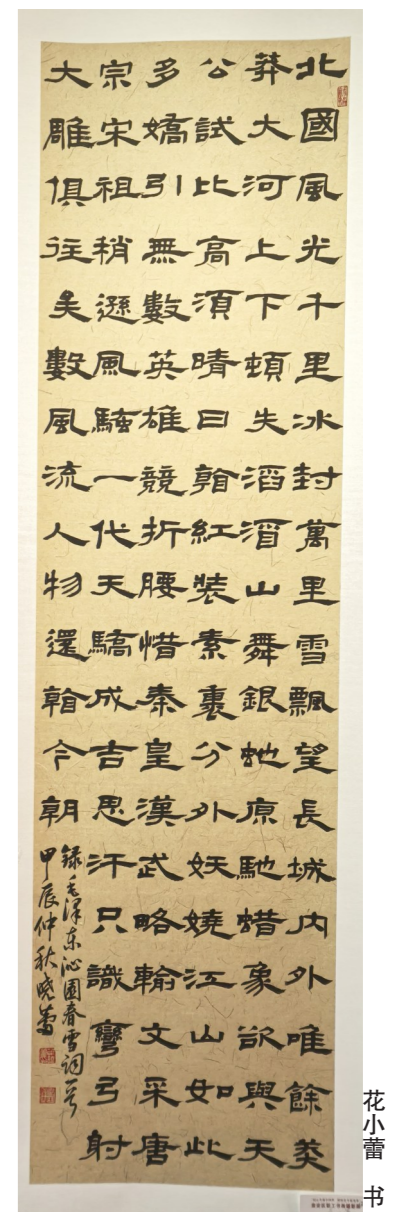 北國風光千里冰封萬里雪飄望長城内外唯餘莽
莽大河上下頓失滔滔山舞銀蛇原馳蜡象欲與天
公試比高須晴日看紅裝素裹分外妖嬈江山如此
多嬌引無數英雄競折腰惜秦皇漢武略輸文采唐
宗宋祖稍遜風騷一代天驕成吉思汗只識彎弓射
大雕俱往矣數風流人物還看今朝
録毛泽东沁園春雪詞一首
甲辰仲秋晓蕾
花小蕾 书